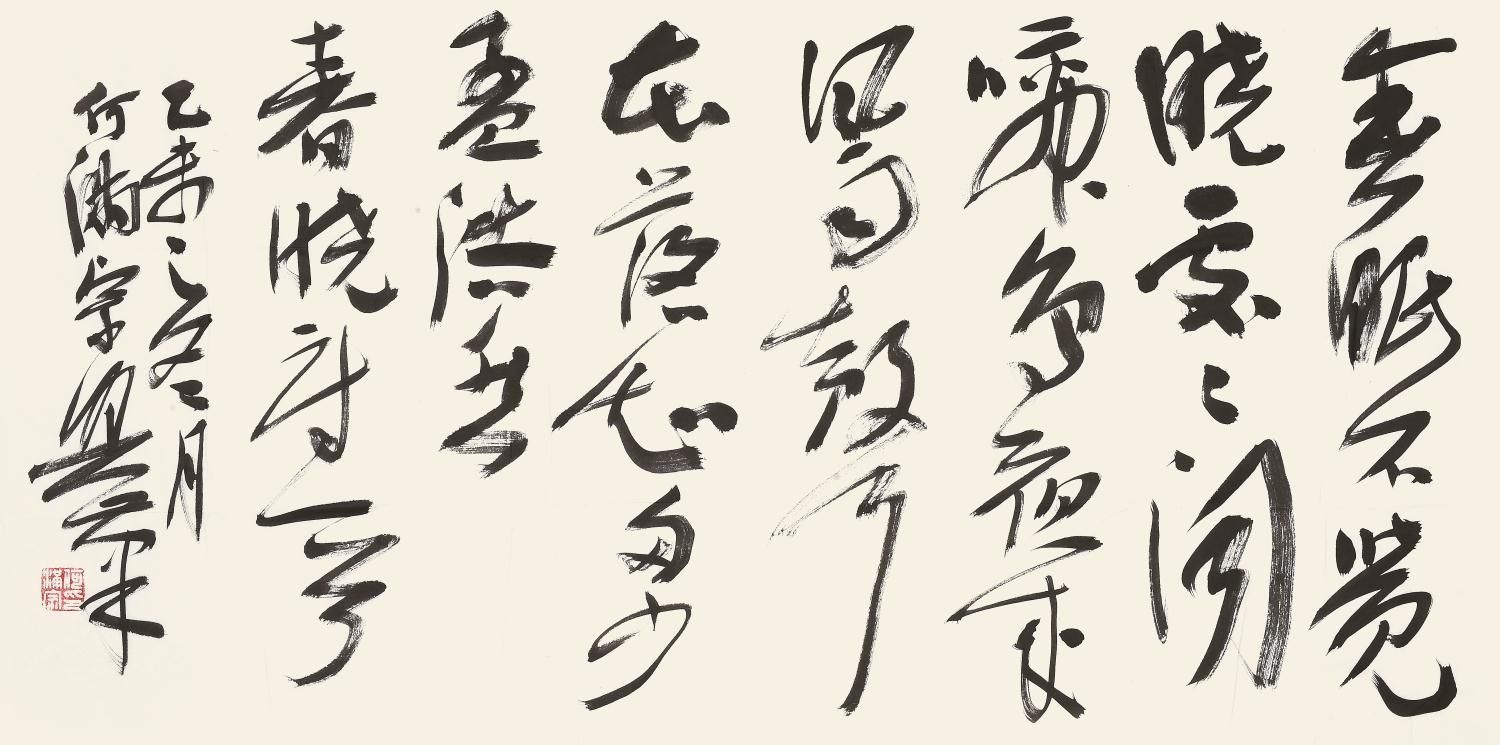 春眠不觉
晓处々闻
啼鸟夜来
风雨声
花落知多少
孟浩然
春晓诗一首
乙未之冬月
何满宗